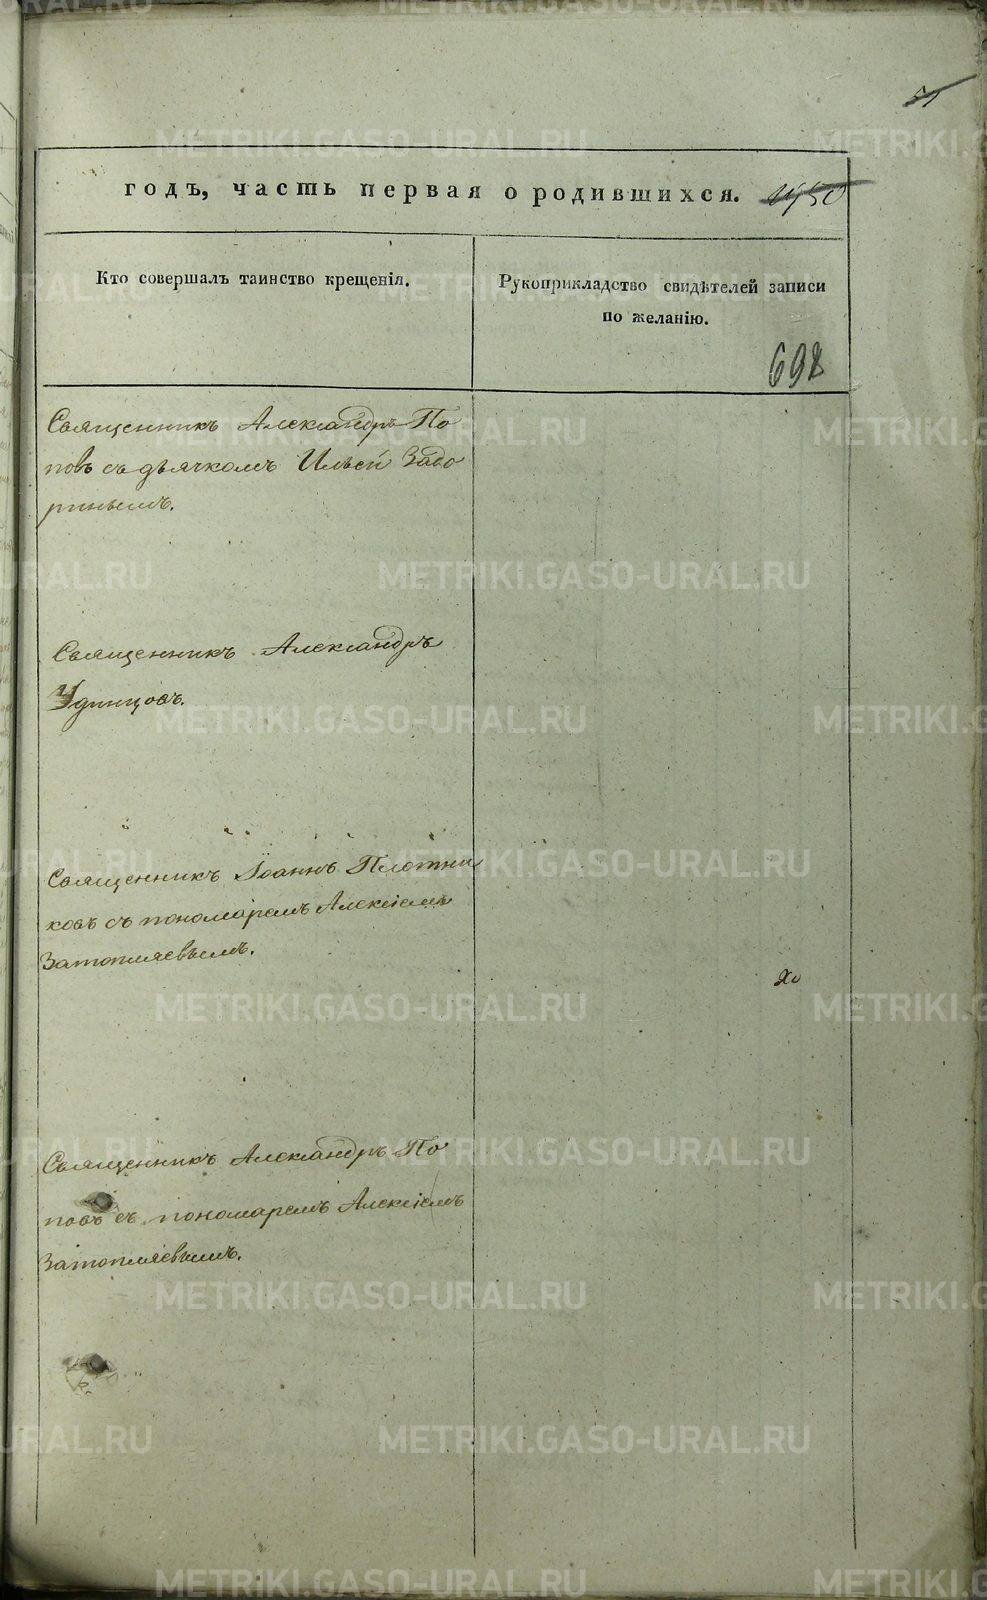 51
годъ, часть первая о родившихся.
Кто совершалъ таинство крещенія.
Рукоприкладство свидѣтелей записи
по желанію.
698
Священникъ Александръ По
повъ съ дьячкомъ Ильей Задо
ринымъ.
Священникъ Александръ
Удинцовъ.
Священникъ Іоаннъ Плотни
ковъ съ пономаремъ Алексіемъ
Затопляевымъ.
Священникъ Александръ По
повъ съ пономаремъ Алексіемъ
Затопляевымъ.
METRIKI.GASO-URAL.RU